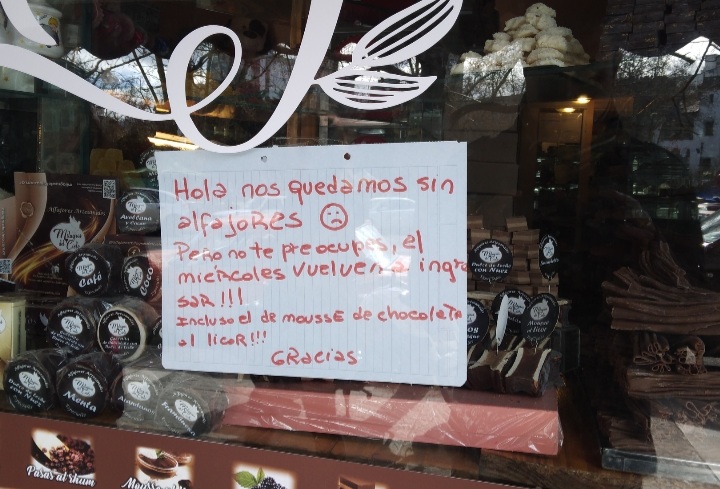 Hola nos quedamos sin
alfajores
Pero no te preocupes, el
miercoles vuelven a ingre
sar!!!
Incluso el de mousse de chocolate
al licor!!!
Gracias
Alfajores Artesanales
Avellana
Café
coco
Menta
Dulce de Leche
con Nuez
Mousse
al licor
Pasas al rhum